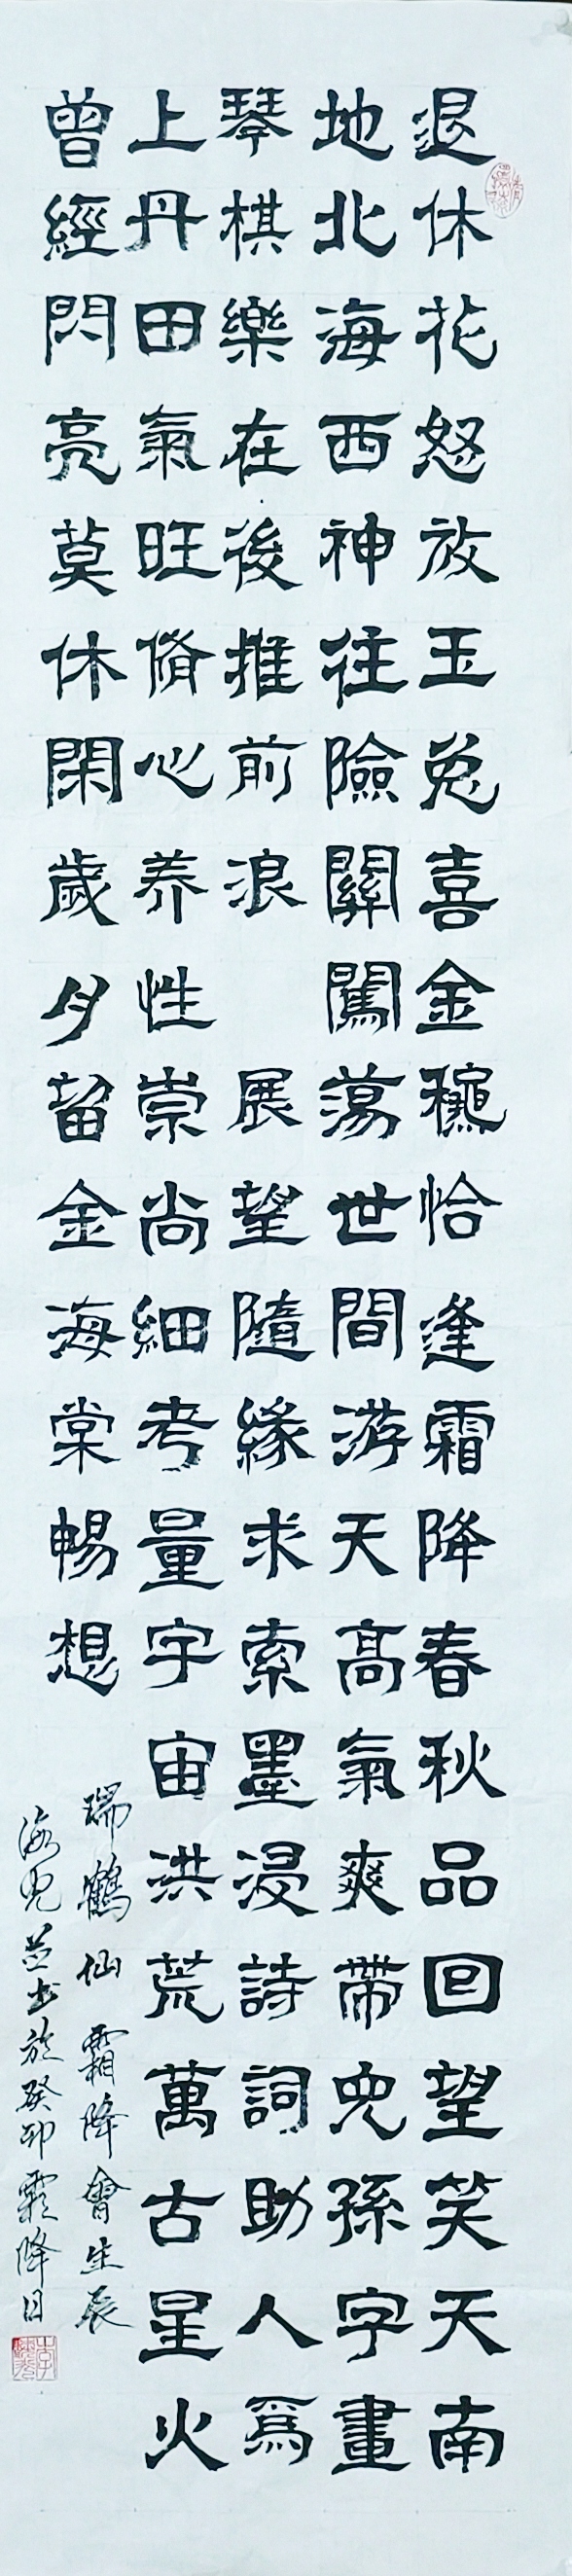 退休花怒放玉兔喜金穐恰逢霜降春秋品回望笑天南
地北海西神往險關闖蕩世間游天高氣爽帶兒孫字畫
琴棋樂在後推前浪 展望隨緣求索墨浸詩詞助人爲
上丹田氣旺脩心养性崇尚細考量宇宙洪荒萬古星火
曾經閃亮莫休閑歲月留金海棠暢想
瑞鶴仙 霜降會生辰
海兒並书於癸卯霜降日